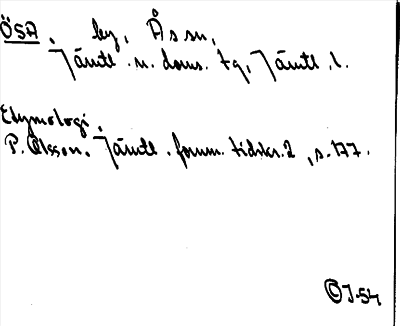 ÖSA. by, Ås sn,
Jämtl. n. doms. tg, Jämtl. l.
Etymologi.
P. Olsson. Jämtl. fornm. tidskr. 2, s. 177.
OJ-54